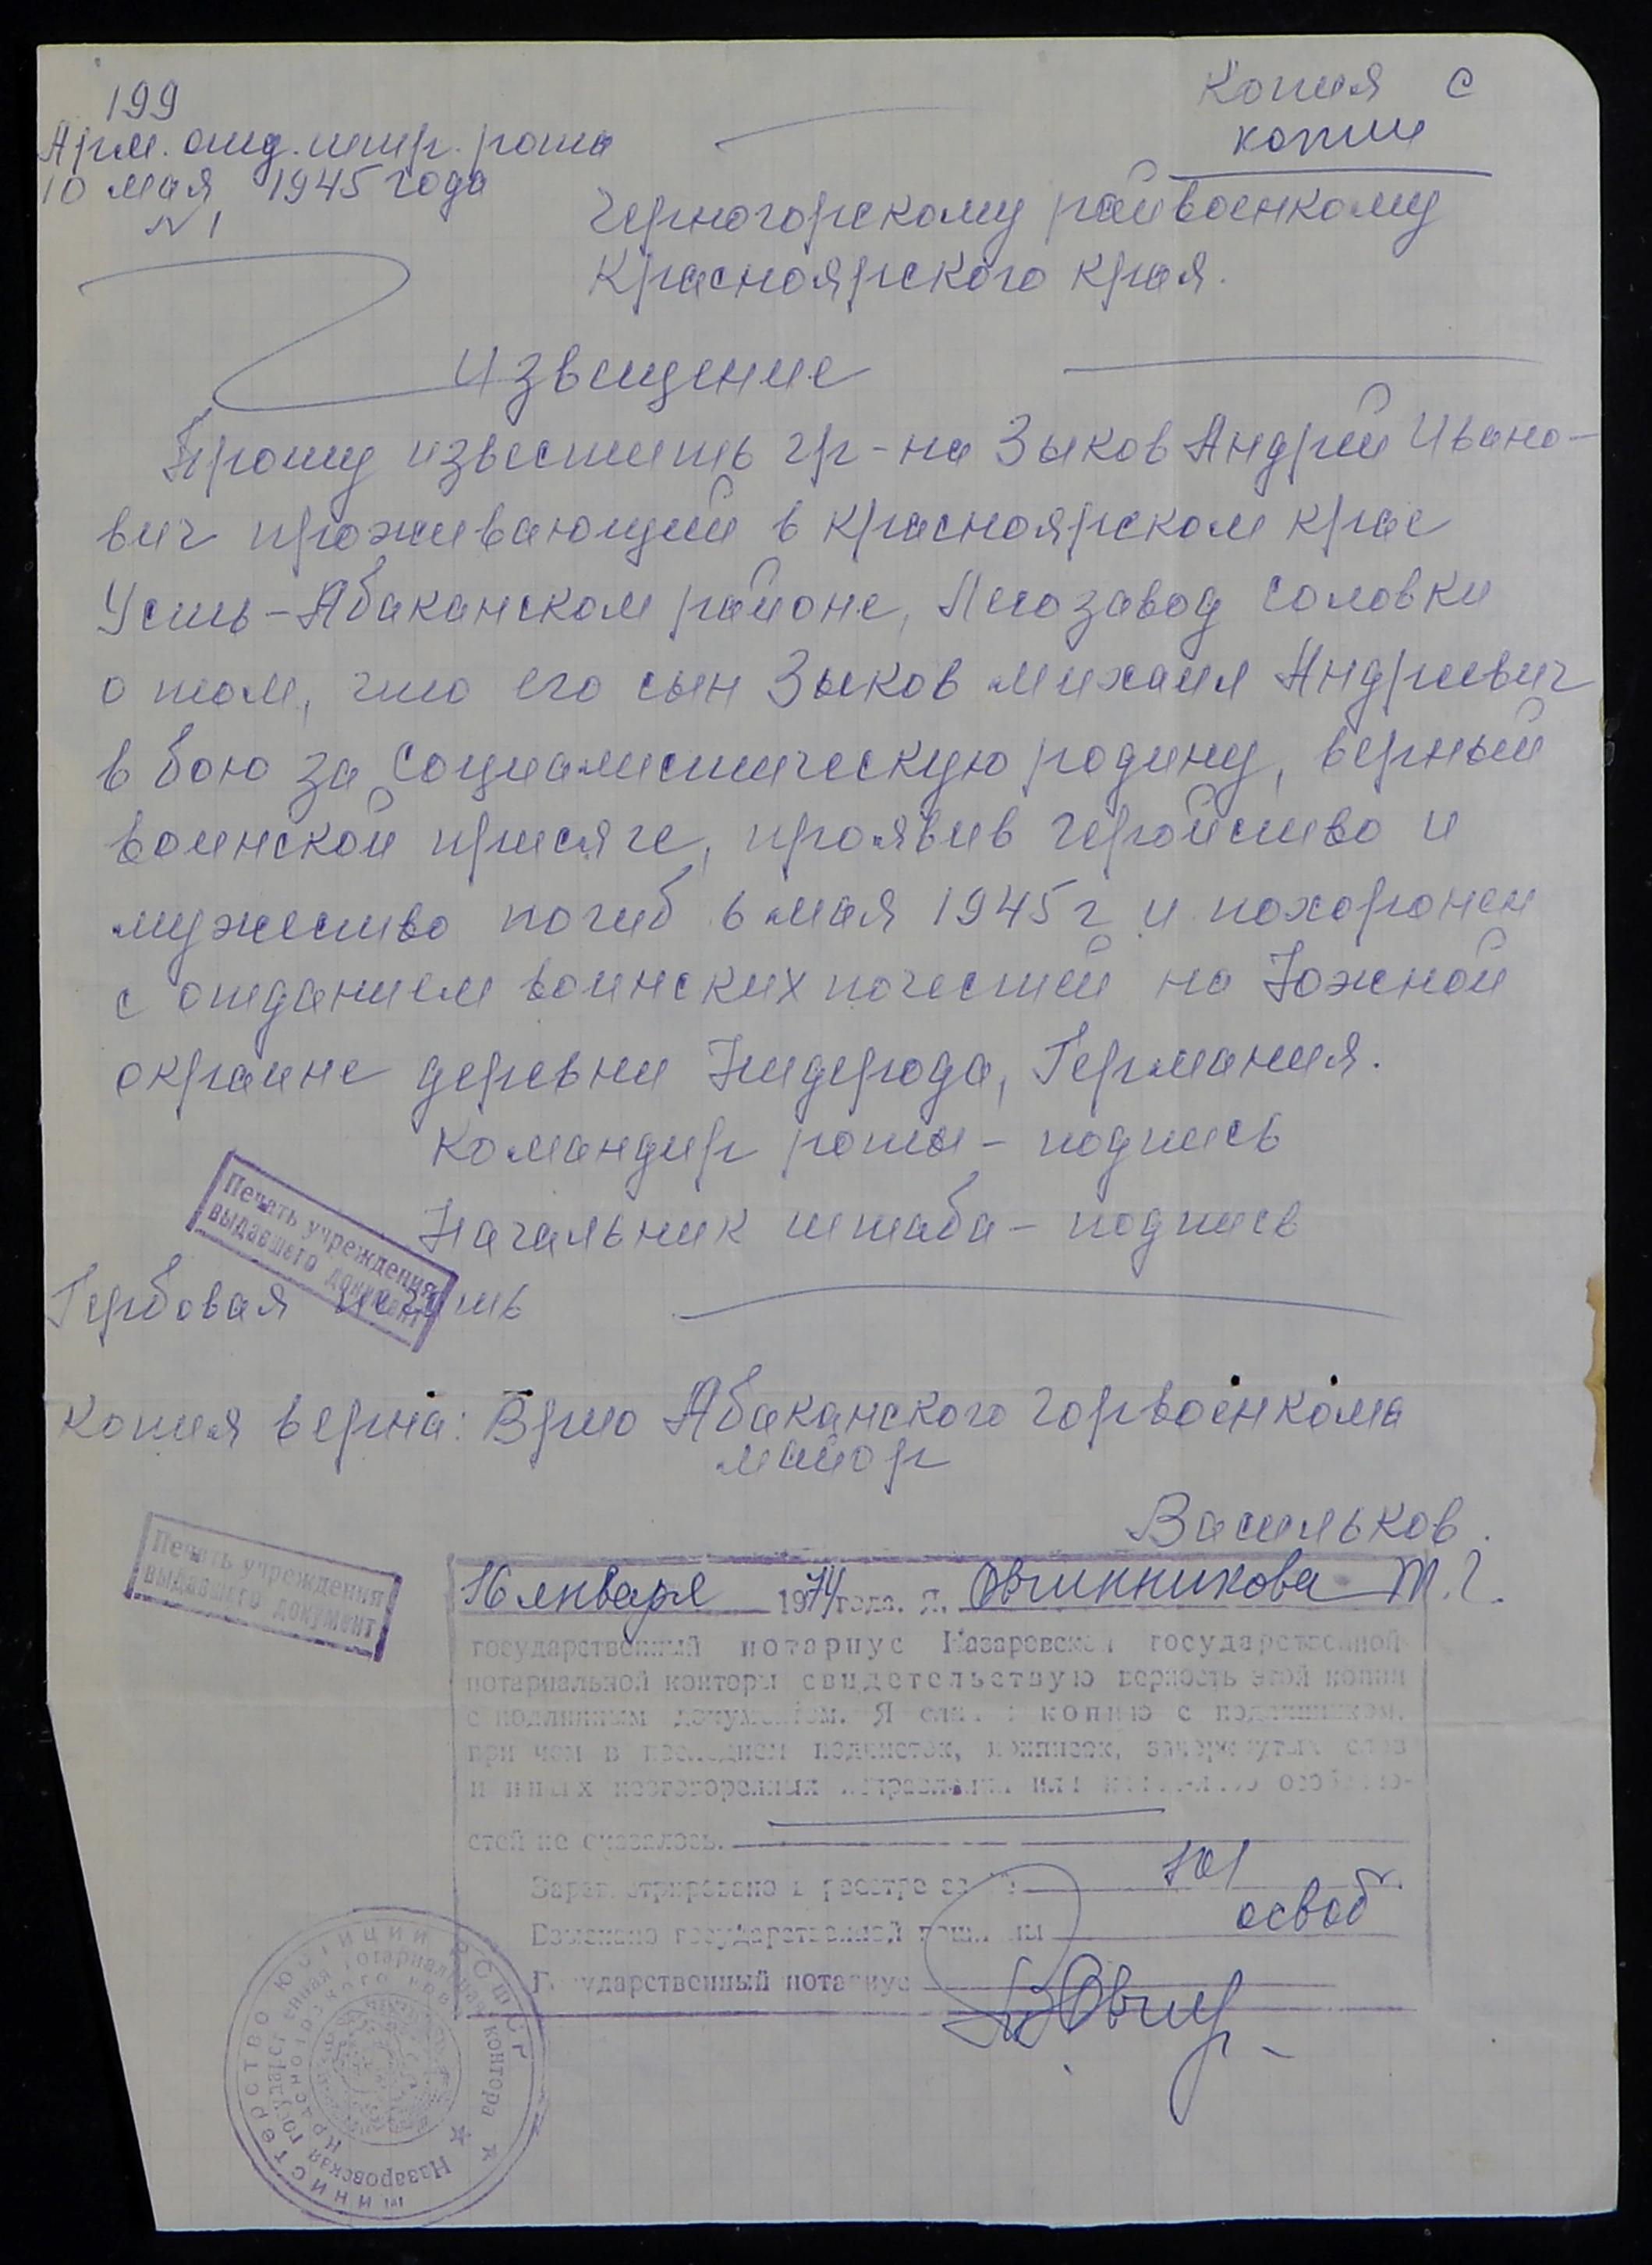 199
Арм. отд. штр. рота
10 мая 1945 года
N 1
Копия с
копии
Черногорскому райвоенкому
Красноярского края.
Извещение
Прошу известить гр-на Зыков Андрей Ивано-
вич проживающий в Красноярском крае
Усть-Абаканском районе, Лесозавод Соловки
о том, что его сын Зыков Михаил Андреевич
в бою за Социалистическую родину, верный
воинской присяге, проявив геройство и
мужество погиб 6 мая 1945 г и похоронен
с отданием воинских почестей на Южной
окраине деревни Нидерода, Германия.
Командир роты – подпись
Начальник штаба – подпись
Печать учреждения
выдавшего документ
Гербовая печать
Копия верна: Врио Абаканского горвоенкома
майор
Васильков.
Печать учреждения
выдавшего документ
16 января 1974 года. Я, Овчинникова Т. Г.
государственный нотариус Назаровской государственной
нотариальной конторы свидетельствую верность этой копии
с подлинным документом. Я сличил копию с подлинником,
при чем в последнем подчисток, приписок, зачеркнутых слов
и иных неоговоренных исправлений или каких-либо особенно-
стей не оказалось.
Зарегистрировано в реестре за №
101
Взыскано государственной пошлины освоб
Государственный нотариус
Министерство юстиции РСФСР
Назаровская государственная нотариальная контора
Красноярского